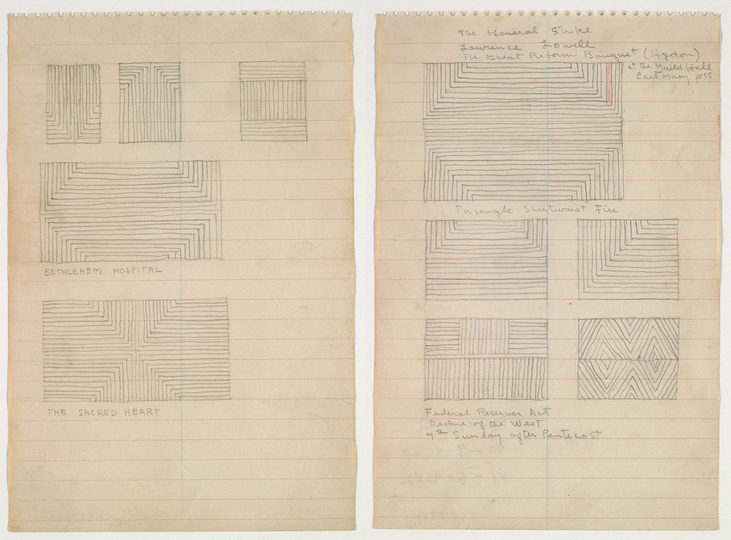 BETHLEHEM HOSPITAL
THE SACRED HEART
The General Strike
Lawrence Lowell
The Great Reform Banquet (Hydon)
at the Guild Hall
Earl Grey
Triangle Shirtwaist Fire
Federal Reserve Act
Decline of the West
7th Sunday after Pentecost